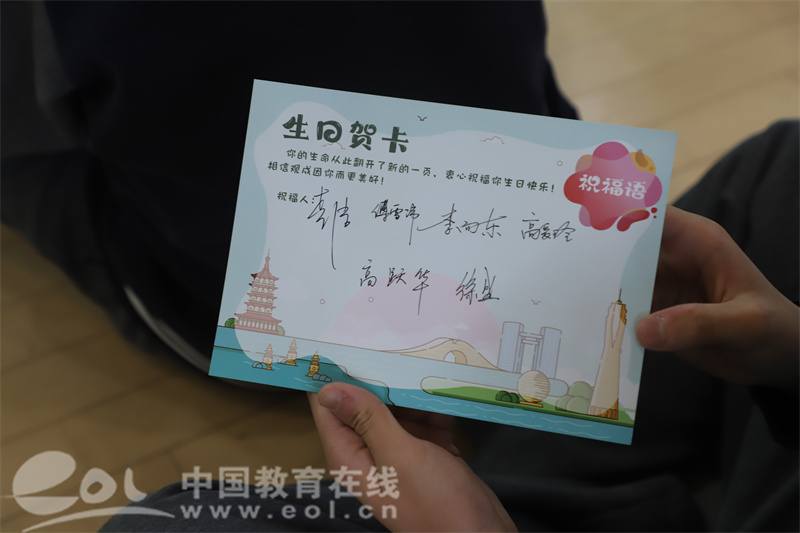 生日贺卡
你的生命从此翻开了新的一页，衷心祝福你生日快乐！
相信观成因你而更美好！
祝福语
祝福人
李向东 高爱玲
高跃华 徐
eol 中国教育在线
www.eol.cn